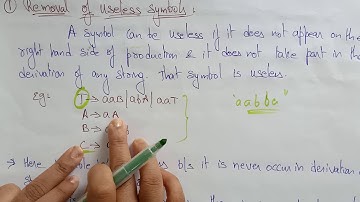 ① Removal of Useless Symbols :
A Symbol can be useless if it does not appear on the
right hand side of production & it does not take part in the
derivation of any string. That symbol is useless.
Eg: T → aaB | abA | aaT
"aabba"
A → aA
B →
C →
→ Here b/s it is never occur in derivation